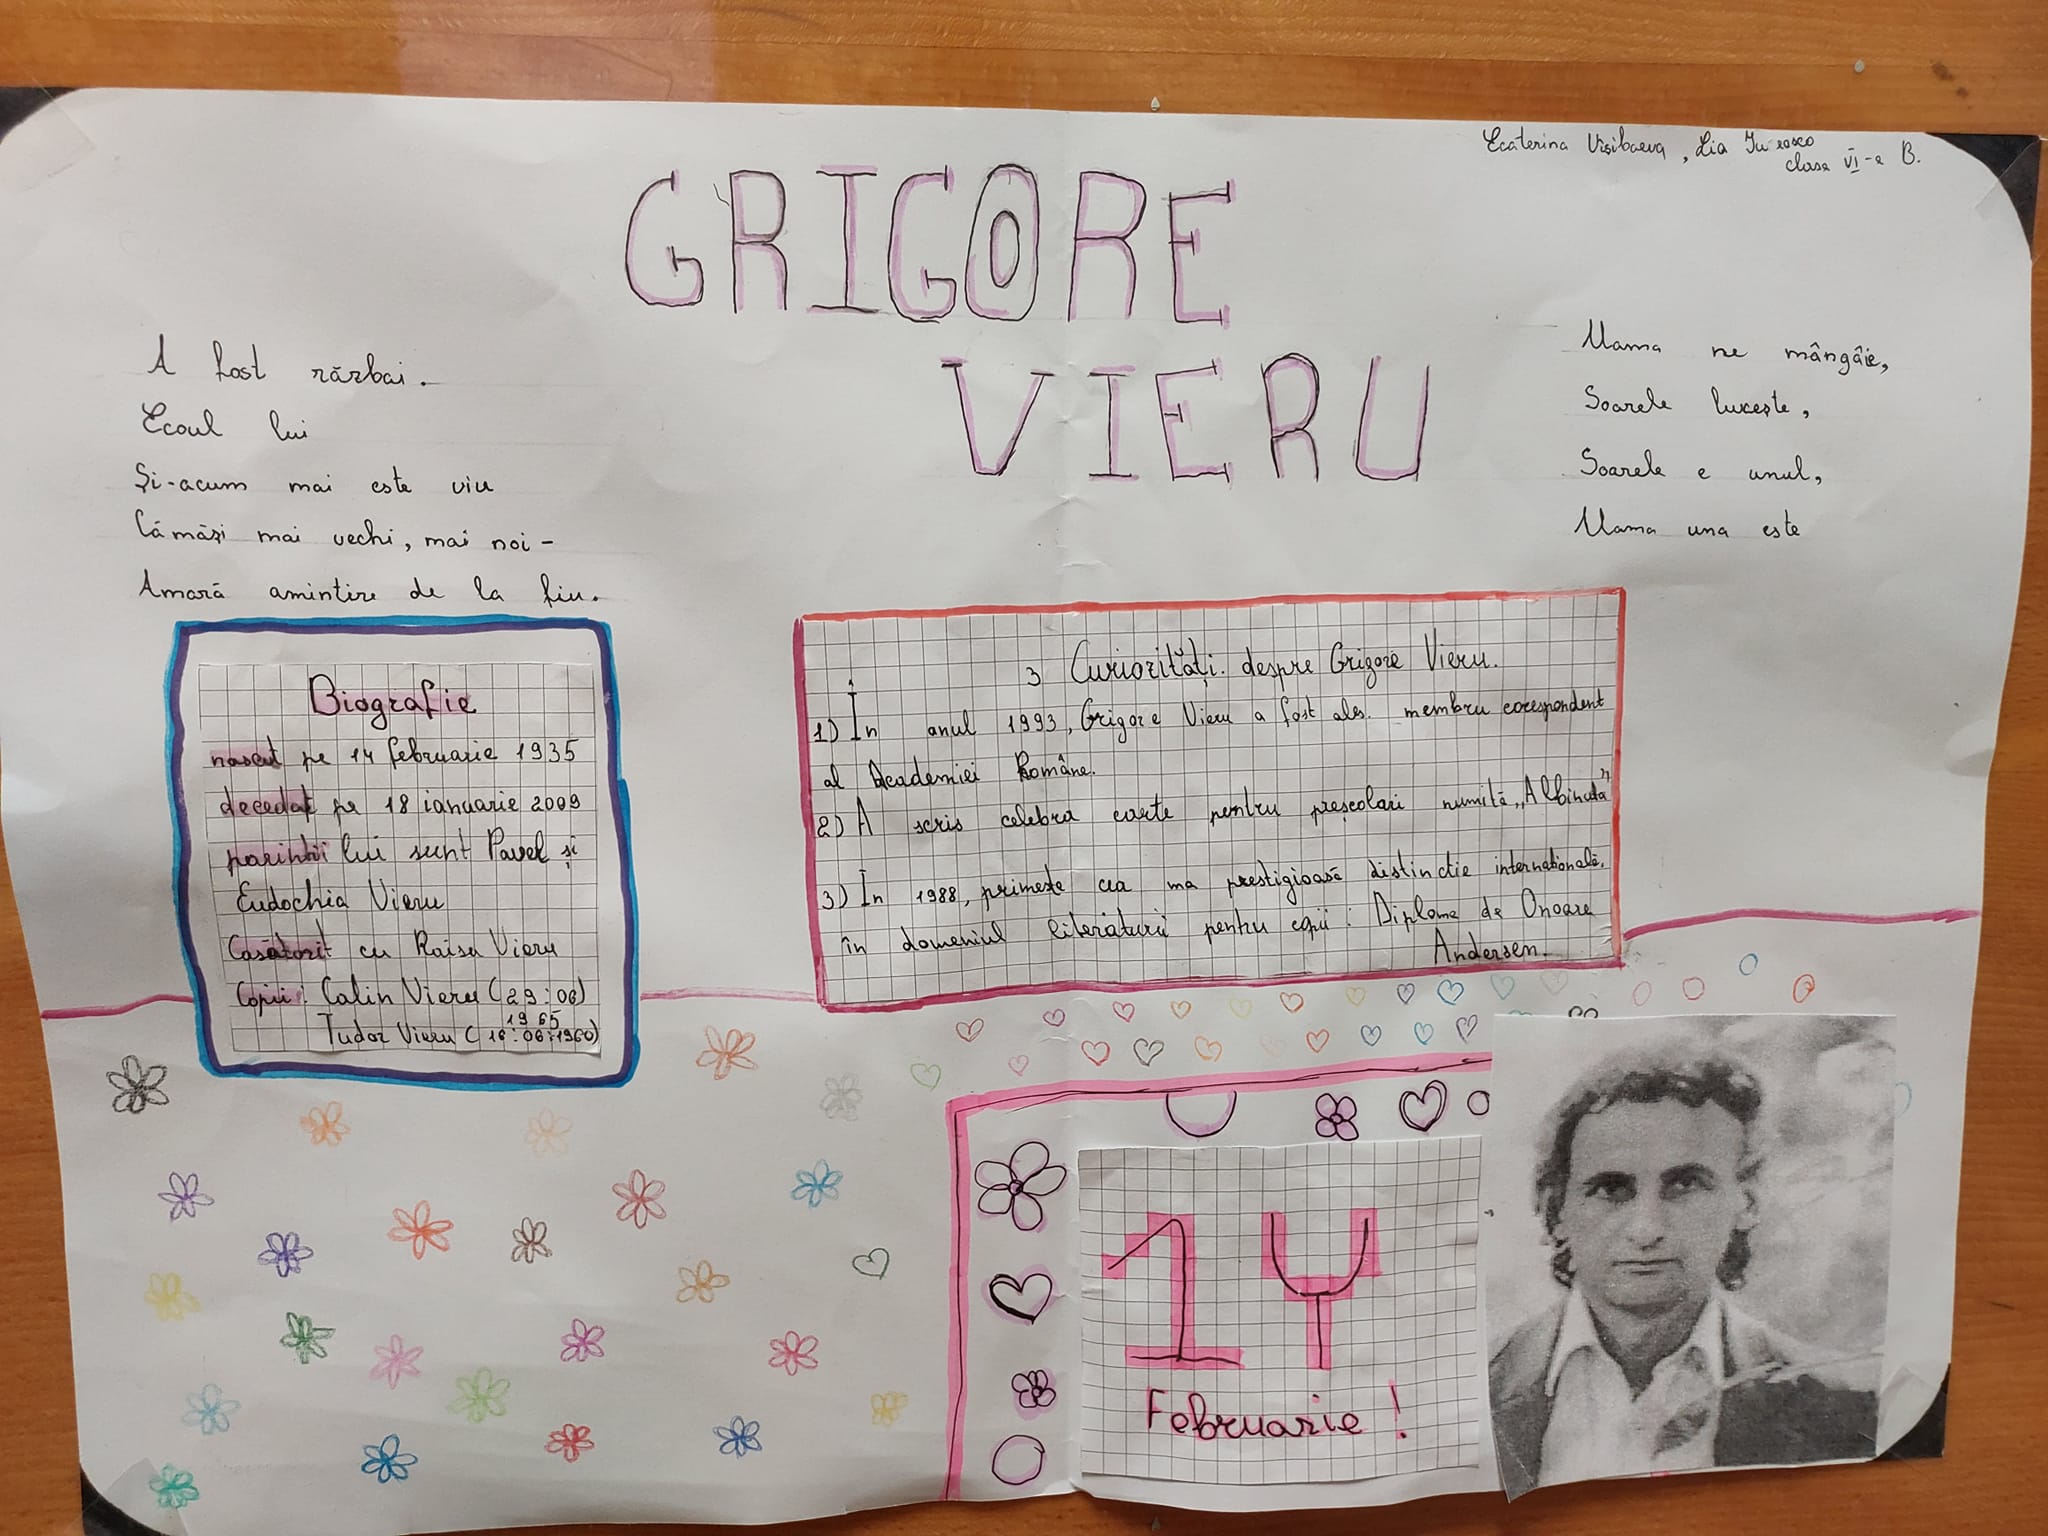 Ecaterina Vișibaeva, Lia
clasa VI-a B.
GRIGORE
VIERU
A fost război.
Ecoul lui
Și-acum mai este viu
Cămăși mai vechi, mai noi -
Amară amintire de la fiu.
Mama ne mângâie,
Soarele lucește,
Soarele e unul,
Mama una este
Biografie
nascut pe 14 februarie 1935
decedat pe 18 ianuarie 2009
parintii lui sunt Pavel și
Eudochia Vieru
Casătorit cu Raisa Vieru
Copii: Calin Vieru (29:06)
1965
Tudor Vieru (16:06:1960)
3 Curiorități. despre Grigore Vieru.
1) În anul 1993, Grigore Vieru a fost ales. membru corespondent
al Academiei Române.
2) A scris celebra carte pentru preșcolari numită „Albinuta”
3) În 1988, primește cea ma prestigioasă distinctie internatională.
în domeniul literaturii pentru copii: Diploma de Onoare
Andersen.
14
Februarie!